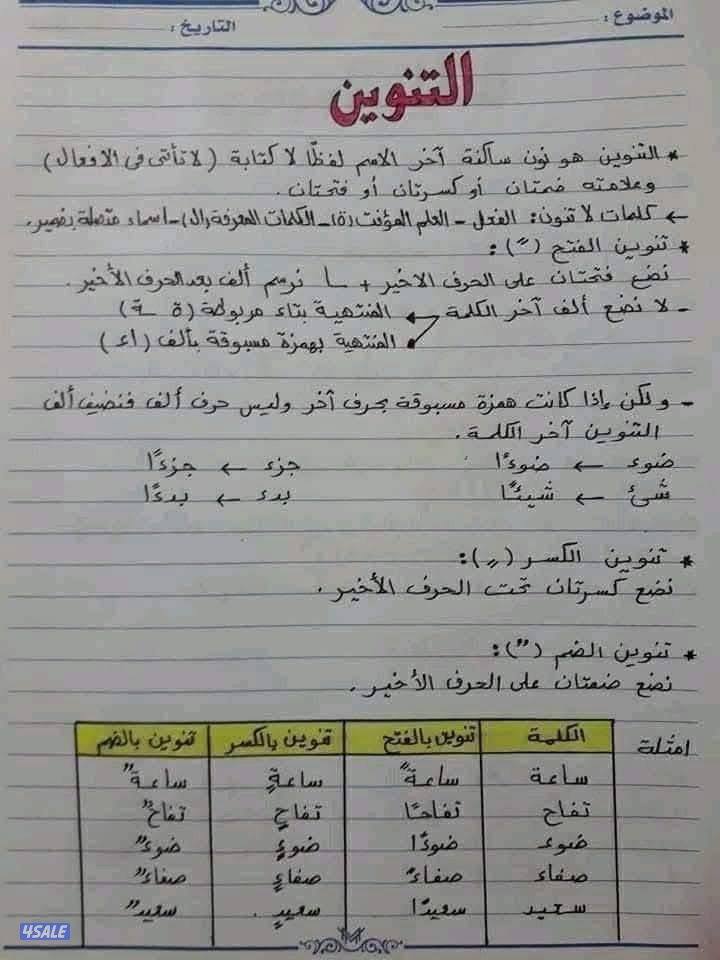 الموضوع :
التاريخ :
التنوين
* التنوين هو نون ساكنة آخر الاسم لفظًا لا كتابة (لا تأتي في الافعال)
وعلامته ضمتان أو كسرتان أو فتحتان.
← كلمات لا تنون: الفعل - العلم المؤنث (ة) - الكلمات المعرفة (ال) - اسماء متصلة بضمير.
* تنوين الفتح ( ً ):
نضع فتحتان على الحرف الاخير + ا نرسم ألف بعد الحرف الأخير.
- لا نضع ألف آخر الكلمة ← المنتهية بتاء مربوطة (ة ـة)
المنتهية بهمزة مسبوقة بألف (اء)
- ولكن إذا كانت همزة مسبوقة بحرف آخر وليس حرف ألف فنضيف ألف
التنوين آخر الكلمة.
ضوء ← ضوءًا جزء ← جزءًا
شئ ← شيئًا بدء ← بدءًا
* تنوين الكسر ( ٍ ):
نضع كسرتان تحت الحرف الأخير.
* تنوين الضم ( ٌ ):
نضع ضمتان على الحرف الأخير.
امثلة
الكلمة تنوين بالفتح تنوين بالكسر تنوين بالضم
ساعة ساعةً ساعةٍ ساعةٌ
تفاح تفاحًا تفاحٍ تفاحٌ
ضوء ضوءًا ضوءٍ ضوءٌ
صفاء صفاءً صفاءٍ صفاءٌ
سعيد سعيدًا سعيدٍ. سعيدٌ
4SALE